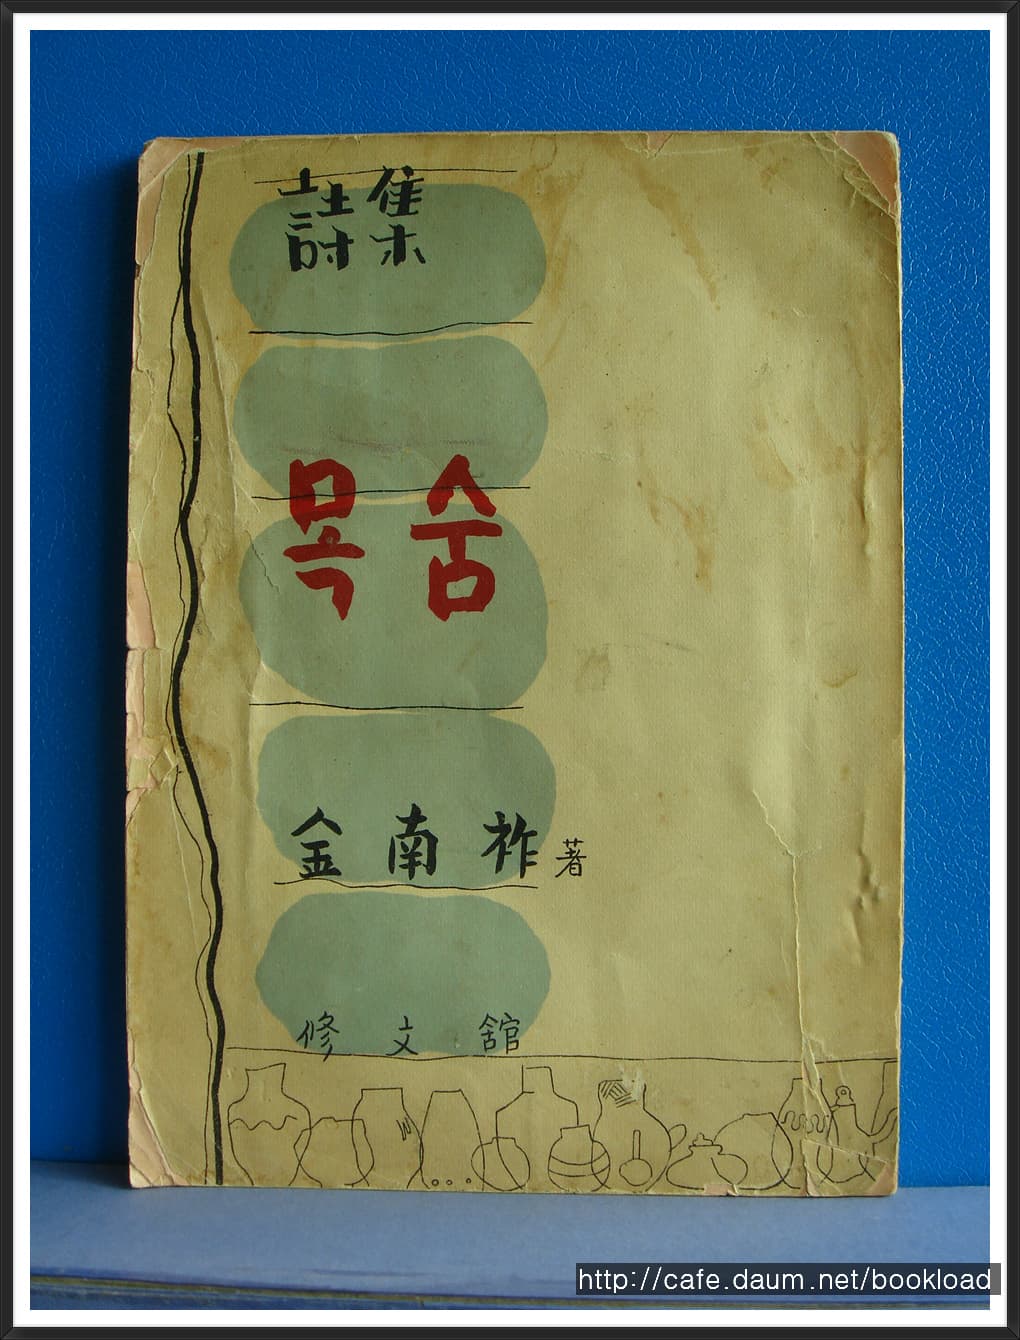 詩集
목숨
金南祚 著
修文館
http://cafe.daum.net/bookload